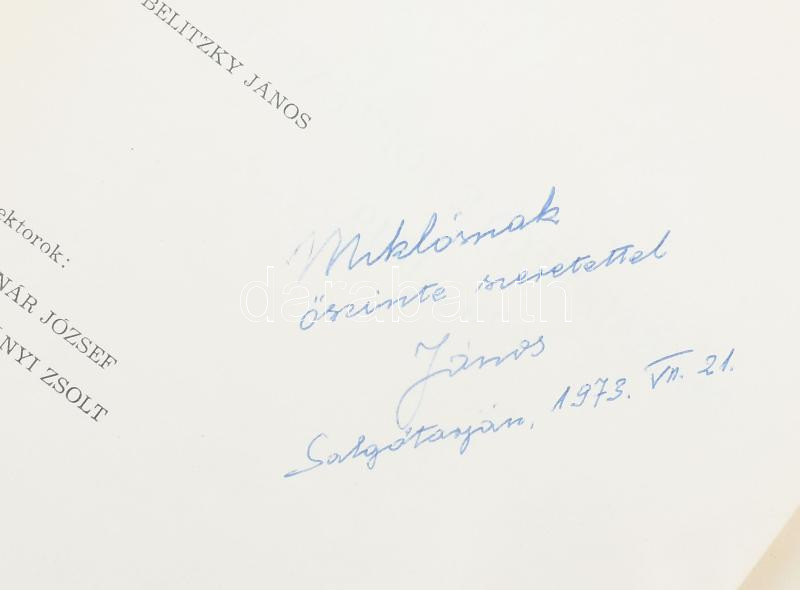 BELITZKY JÁNOS
ektorok:
NÁR JÓZSEF
NYI ZSOLT
Miklósnak
őszinte szeretettel
János
Salgótarján, 1973. VII. 21.
darabanth